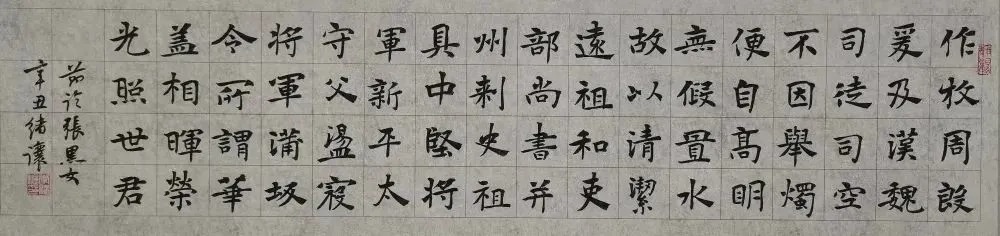 作牧周殷
爰及漢魏
司徒司空
不因舉燭
便自高明
無假置水
故以清潔
遠祖和吏
部尚書并
州刺史祖
具中堅將
軍新平太
守父盪寇
將軍蒲坂
令所謂華
蓋相暉榮
光照世君
節临張黑女
辛丑緒讓